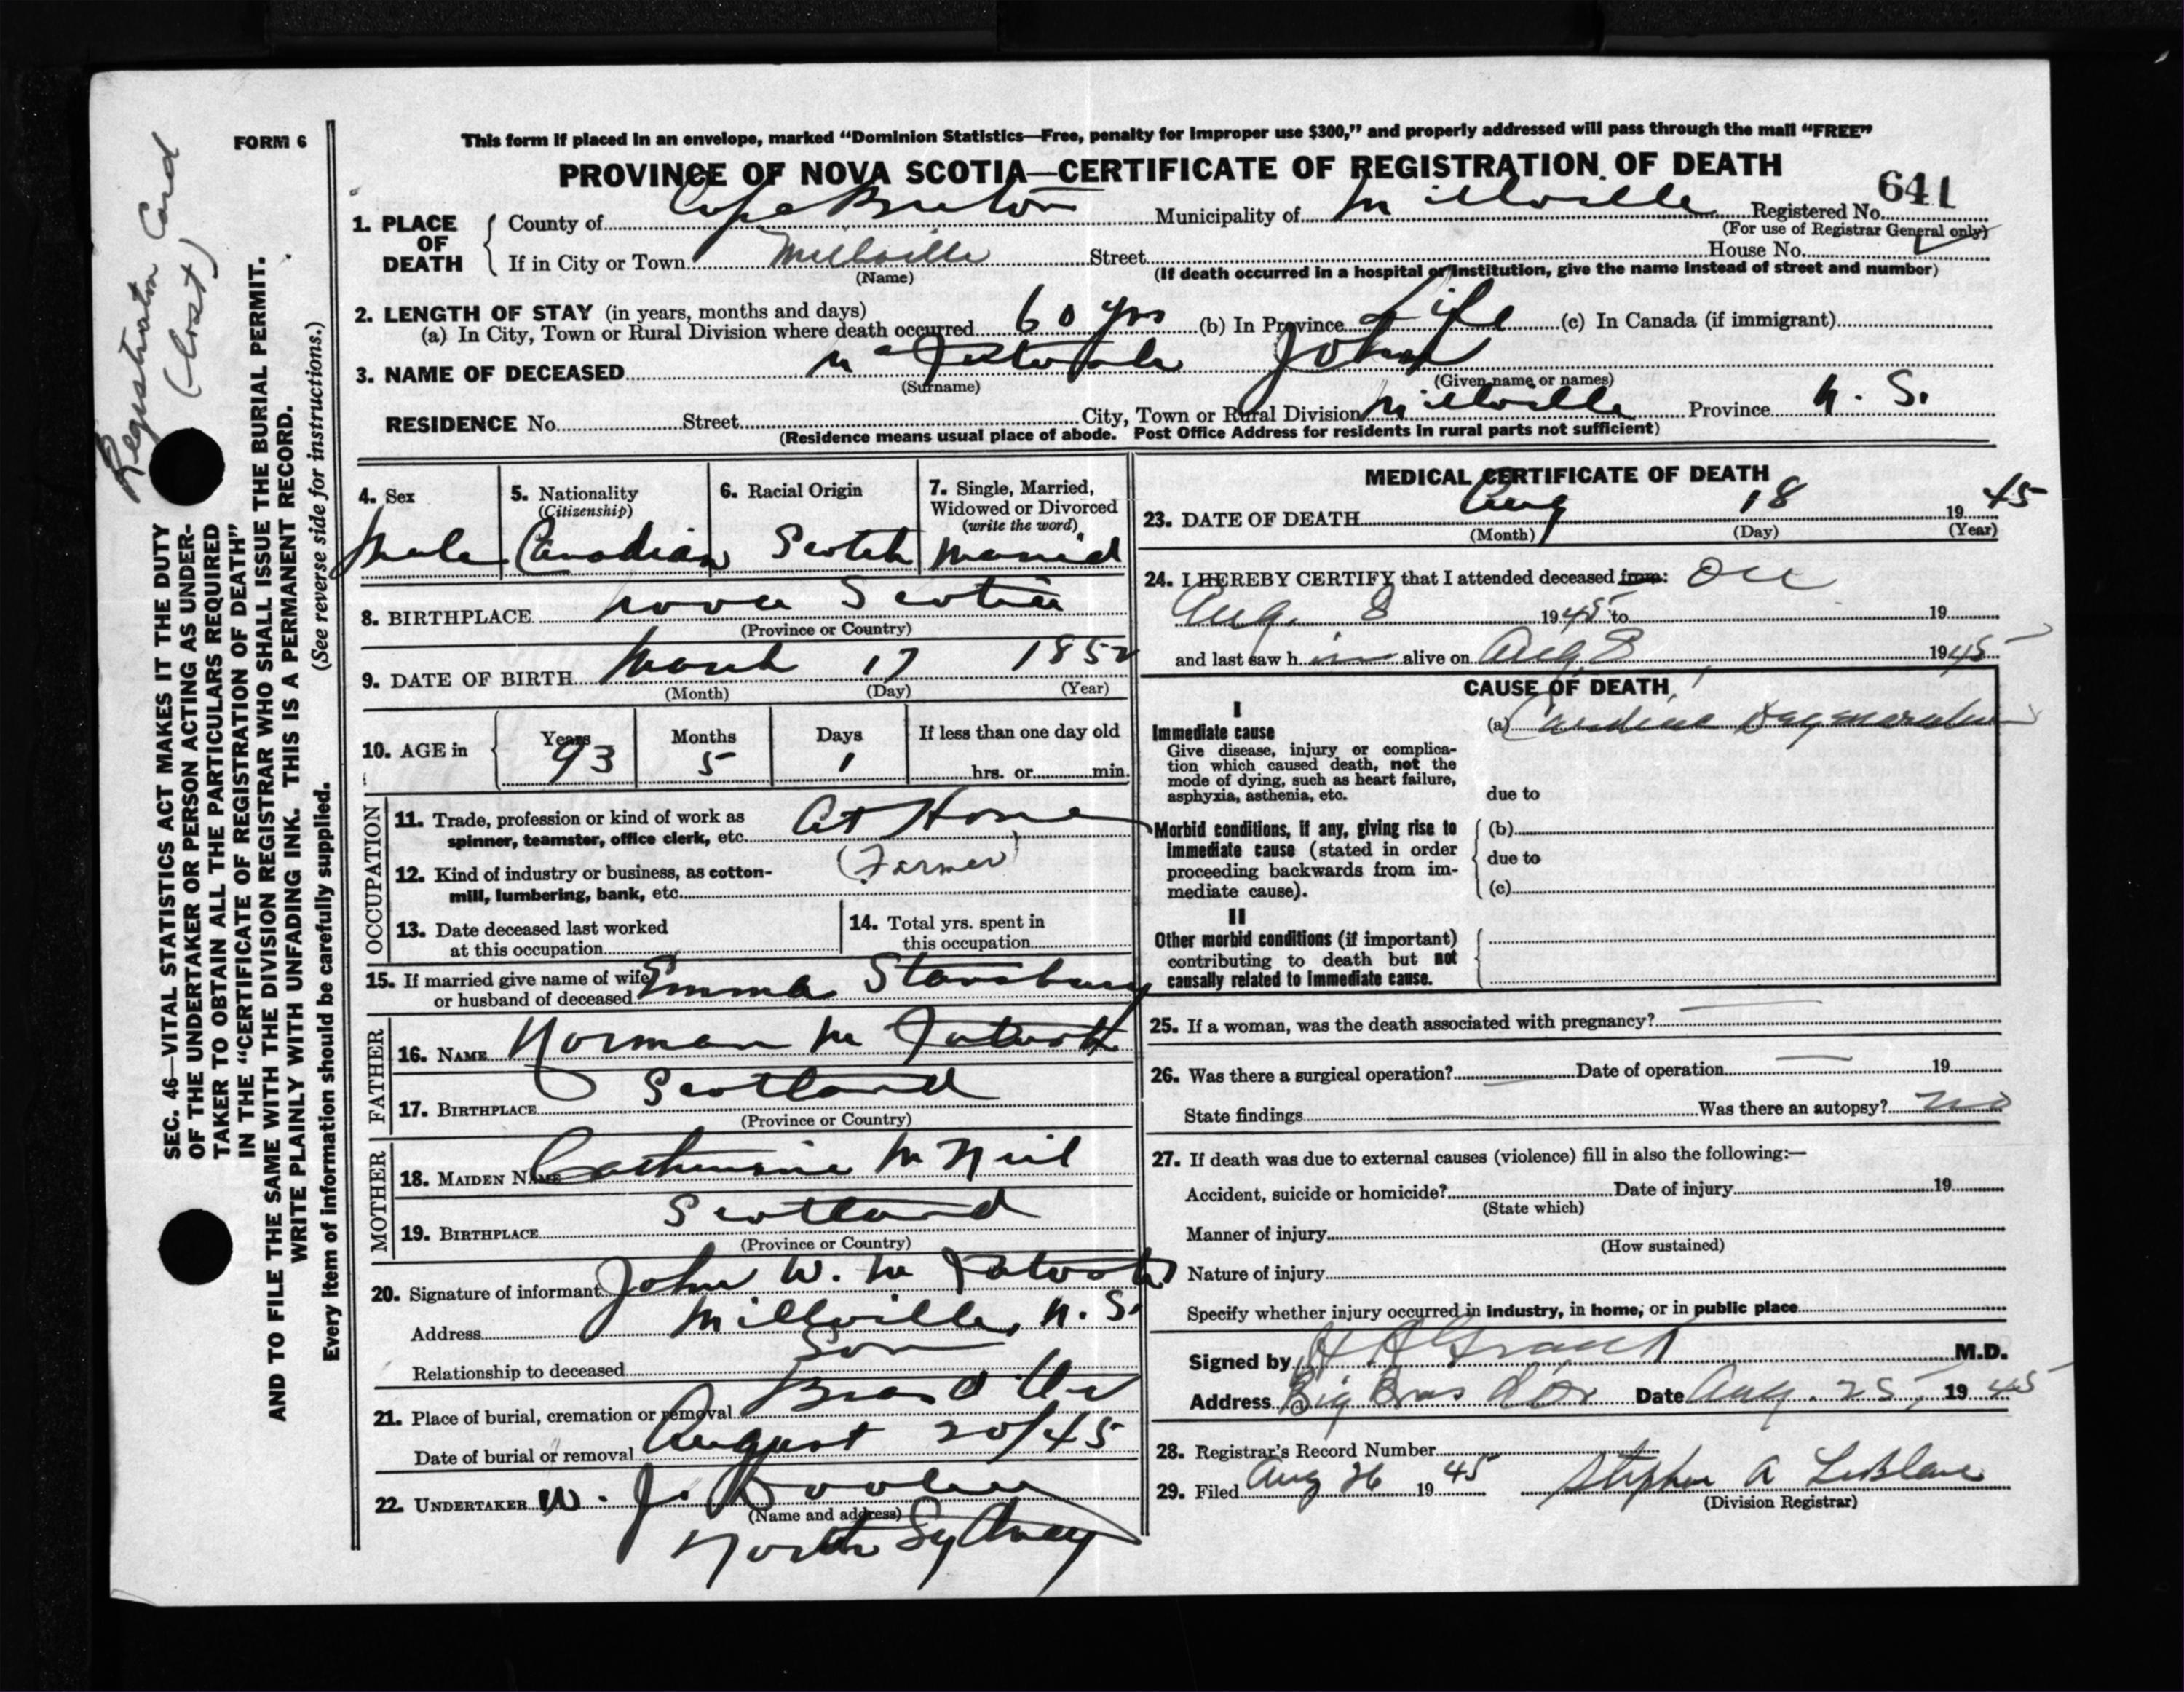 FORM 6
This form if placed in an envelope, marked “Dominion Statistics—Free, penalty for improper use $300,” and properly addressed will pass through the mail “FREE”
PROVINCE OF NOVA SCOTIA—CERTIFICATE OF REGISTRATION OF DEATH
641
1. PLACE OF DEATH
County of Cape Breton Municipality of Millville Registered No.
(For use of Registrar General only)
If in City or Town Millville Street House No.
(Name) (If death occurred in a hospital or institution, give the name instead of street and number)
2. LENGTH OF STAY (in years, months and days)
(a) In City, Town or Rural Division where death occurred 60 yrs (b) In Province Life (c) In Canada (if immigrant)
3. NAME OF DECEASED John
(Surname) (Given name or names)
RESIDENCE No. Street City, Town or Rural Division Millville Province N. S.
(Residence means usual place of abode. Post Office Address for residents in rural parts not sufficient)
4. Sex 5. Nationality (Citizenship) 6. Racial Origin 7. Single, Married, Widowed or Divorced (write the word)
Male Canadian Scotch Married
8. BIRTHPLACE Nova Scotia
(Province or Country)
9. DATE OF BIRTH March 17 1852
(Month) (Day) (Year)
10. AGE in Years Months Days If less than one day old
93 5 1 hrs. or min.
OCCUPATION
11. Trade, profession or kind of work as spinner, teamster, office clerk, etc. At Home
12. Kind of industry or business, as cotton-mill, lumbering, bank, etc. (Farmer)
13. Date deceased last worked at this occupation
14. Total yrs. spent in this occupation
15. If married give name of wife or husband of deceased Emma Stansbury
FATHER
16. NAME Norman
17. BIRTHPLACE Scotland
(Province or Country)
MOTHER
18. MAIDEN NAME Catherine McNeil
19. BIRTHPLACE Scotland
(Province or Country)
20. Signature of informant John W.
Address Millville, N. S.
Relationship to deceased Son
21. Place of burial, cremation or removal
Date of burial or removal August 20/45
22. UNDERTAKER W. J. Dooley
(Name and address)
North Sydney
MEDICAL CERTIFICATE OF DEATH
23. DATE OF DEATH Aug 18 1945
(Month) (Day) (Year)
24. I HEREBY CERTIFY that I attended deceased from: on
Aug. 8 1945 to 19
and last saw h im alive on Aug 8 1945
CAUSE OF DEATH
I
Immediate cause
Give disease, injury or complication which caused death, not the mode of dying, such as heart failure, asphyxia, asthenia, etc.
(a) Cardiac Degeneration
due to
Morbid conditions, if any, giving rise to immediate cause (stated in order proceeding backwards from immediate cause).
(b)
due to
(c)
II
Other morbid conditions (if important) contributing to death but not causally related to immediate cause.
25. If a woman, was the death associated with pregnancy?
26. Was there a surgical operation? Date of operation 19
State findings Was there an autopsy? no
27. If death was due to external causes (violence) fill in also the following:—
Accident, suicide or homicide? Date of injury 19
(State which)
Manner of injury
(How sustained)
Nature of injury
Specify whether injury occurred in industry, in home, or in public place
Signed by H A Grant M.D.
Address Big Bras d'Or Date Aug. 25, 1945
28. Registrar's Record Number
29. Filed Aug 26 1945 Stephen A LeBlanc
(Division Registrar)
Registration Card
(Lost)
SEC. 46—VITAL STATISTICS ACT MAKES IT THE DUTY
OF THE UNDERTAKER OR PERSON ACTING AS UNDER-
TAKER TO OBTAIN ALL THE PARTICULARS REQUIRED
IN THE “CERTIFICATE OF REGISTRATION OF DEATH”
AND TO FILE THE SAME WITH THE DIVISION REGISTRAR WHO SHALL ISSUE THE BURIAL PERMIT.
WRITE PLAINLY WITH UNFADING INK. THIS IS A PERMANENT RECORD.
Every item of information should be carefully supplied. (See reverse side for instructions.)